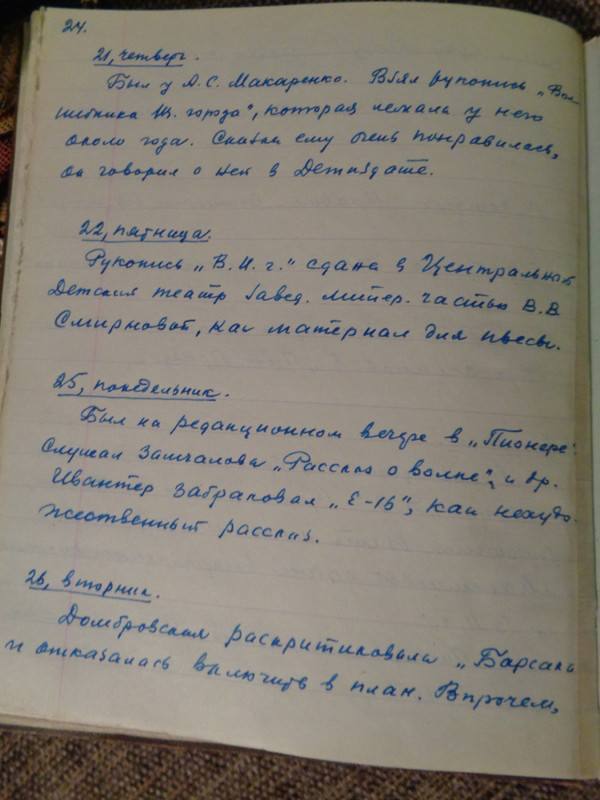 24.
21, четверг.
Был у А. С. Макаренко. Взял рукопись „Вол-
шебника Из. города", которая лежала у него
около года. Сказка ему очень понравилась,
он говорил о ней в Детиздате.
22, пятница.
Рукопись „В. И. г." сдана в Центральный
Детский театр завед. литер. частью В. В.
Смирновой, как материал для пьесы.
25, понедельник.
Был на редакционном вечере в „Пионере".
Слушал Замчалова „Рассказ о волке", и др.
Ивантер забраковал „Е-15", как нехудо-
жественный рассказ.
26, вторник.
Домбровская раскритиковала „Барсака"
и отказалась включить в план. Впрочем,